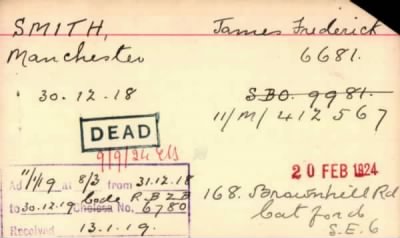 SMITH, James Frederick
Manchester 6681.
30.12.18 SBO. 9981.
11/M/412567
DEAD
9/9/24
20 FEB 1924
Ad 11/1/19 at 8/3 from 31.12.18
Code RBZB
to 30.12.19 Chelsea No. 6780
Received 13.1.19.
168. Brownhill Rd
Catford
S.E.6